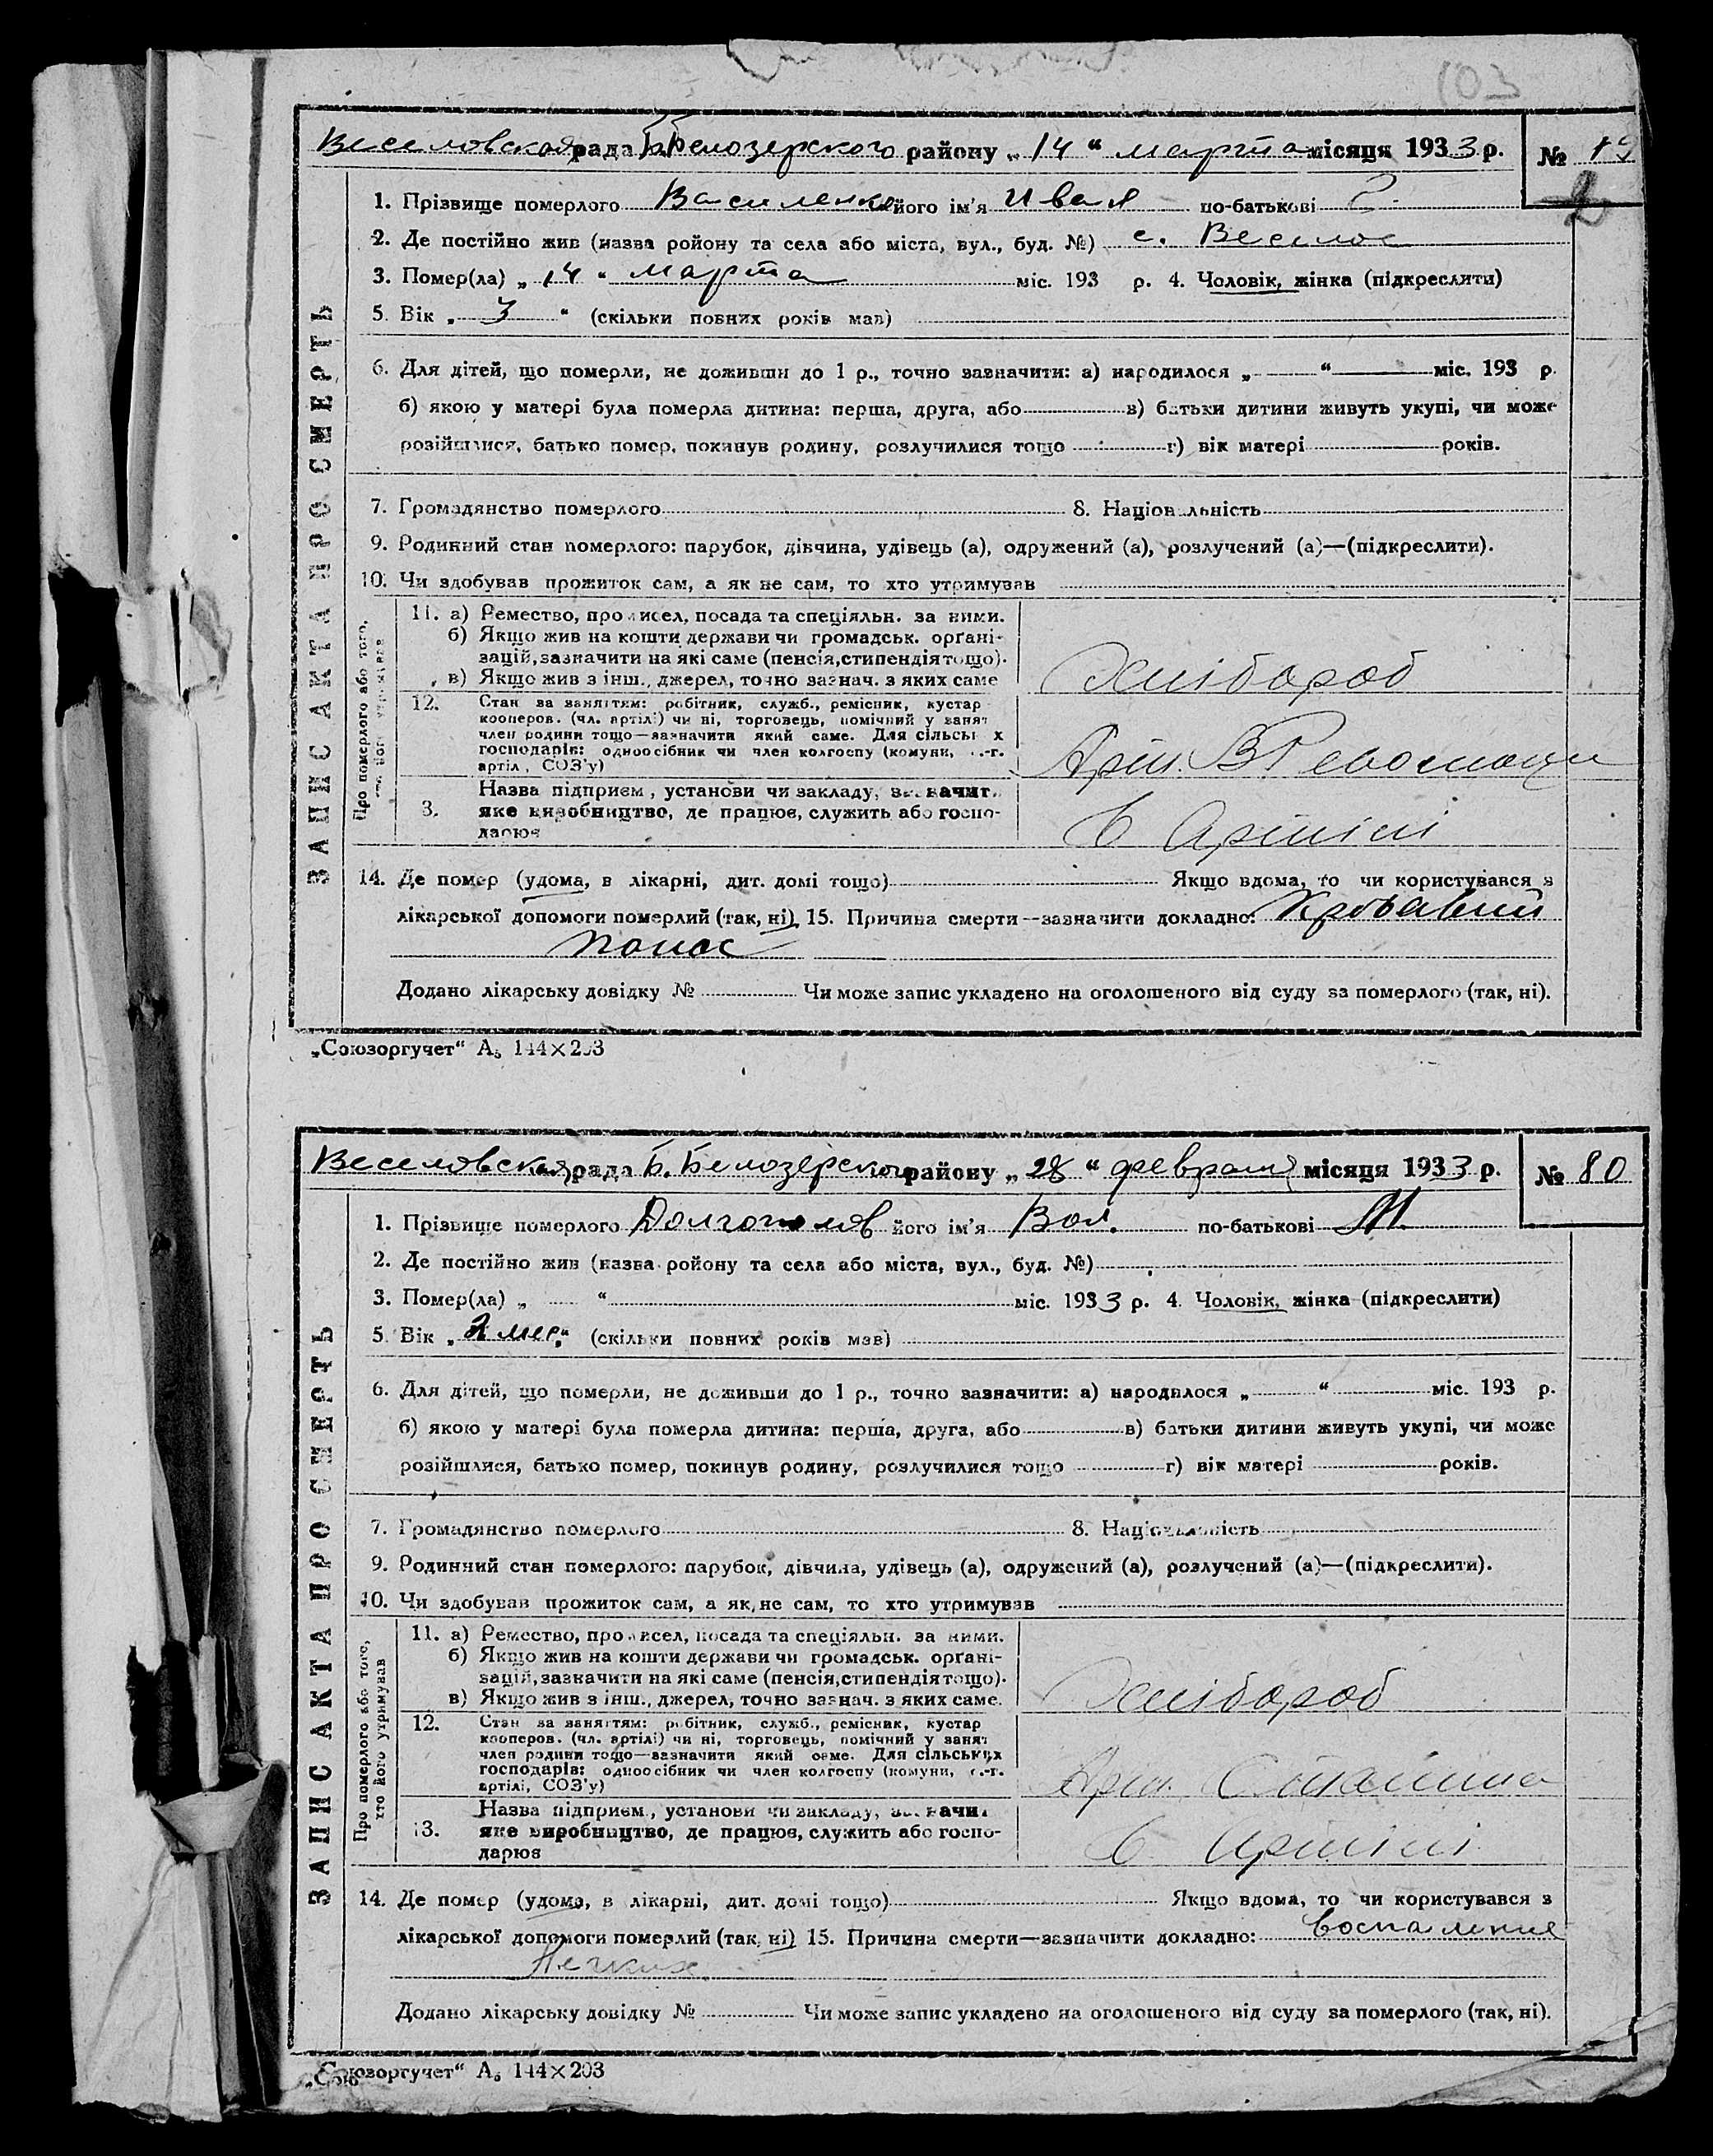 103
Веселовская рада Б Белозерского району „14“ марта місяця 1933 р. № 79
2
1. Прізвище померлого Василенко його ім'я Иван по-батькові
2. Де постійно жив (назва ройону та села або міста, вул., буд. №) с. Веселое
3. Помер(ла) „14“ марта міс. 193 р. 4. Чоловік, жінка (підкреслити)
5. Вік „3“ (скільки повних років мав)
6. Для дітей, що померли, не доживши до 1 р., точно зазначити: а) народилося „ “ міс. 193 р.
б) якою у матері була померла дитина: перша, друга, або в) батьки дитини живуть укупі, чи може
розійшлися, батько помер, покинув родину, розлучилися тощо г) вік матері років.
7. Громадянство померлого 8. Національність
9. Родинний стан померлого: парубок, дівчина, удівець (а), одружений (а), розлучений (а)—(підкреслити).
10. Чи здобував прожиток сам, а як не сам, то хто утримував
ЗАПИС АКТА ПРО СМЕРТЬ
Про померлого або того,
хто його утримував
11. а) Ремество, промисел, посада та спеціяльн. за ними.
б) Якщо жив на кошти держави чи громадськ. орґані-
зацій, зазначити на які саме (пенсія, стипендія тощо).
в) Якщо жив з інш., джерел, точно зазнач. з яких саме
Хлібороб
12. Стан за заняттям: робітник, служб., ремісник, кустар
кооперов. (чл. артілі) чи ні, торговець, помічний у занят
член родини тощо—зазначити який саме. Для сільських
господарів: одноосібник чи член колгоспу (комуни, с.-г.
артіл, СОЗ'у)
Арт.
3. Назва підприєм, установи чи закладу, зазначит
яке виробництво, де працює, служить або госпо-
дарює
в Артілі
14. Де помер (удома, в лікарні, дит. домі тощо) Якщо вдома, то чи користувався з
лікарської допомоги померлий (так, ні) 15. Причина смерти—зазначити докладно: Кровавий
понос
Додано лікарську довідку № Чи може запис укладено на оголошеного від суду за померлого (так, ні).
„Союзоргучет“ А5 144×203
Веселовская рада Б. Белозерского району „28“ февраля місяця 1933 р. № 80
1. Прізвище померлого Долгополов його ім'я Вол. по-батькові М.
2. Де постійно жив (назва ройону та села або міста, вул., буд. №)
3. Помер(ла) „ “ міс. 1933 р. 4. Чоловік, жінка (підкреслити)
5. Вік „2 мес.“ (скільки повних років мав)
6. Для дітей, що померли, не доживши до 1 р., точно зазначити: а) народилося „ “ міс. 193 р.
б) якою у матері була померла дитина: перша, друга, або в) батьки дитини живуть укупі, чи може
розійшлися, батько помер, покинув родину, розлучилися тощо г) вік матері років.
7. Громадянство померлого 8. Національність
9. Родинний стан померлого: парубок, дівчина, удівець (а), одружений (а), розлучений (а)—(підкреслити).
10. Чи здобував прожиток сам, а як не сам, то хто утримував
ЗАПИС АКТА ПРО СМЕРТЬ
Про померлого або того,
хто його утримував
11. а) Ремество, промисел, посада та спеціяльн. за ними.
б) Якщо жив на кошти держави чи громадськ. орґані-
зацій, зазначити на які саме (пенсія, стипендія тощо).
в) Якщо жив з інш., джерел, точно зазнач. з яких саме.
Хлібороб
12. Стан за заняттям: робітник, служб., ремісник, кустар
кооперов. (чл. артілі) чи ні, торговець, помічний у занят
член родини тощо—зазначити який саме. Для сільських
господарів: одноосібник чи член колгоспу (комуни, с.-г.
артілі, СОЗ'у)
Арт. Сталина
13. Назва підприєм., установи чи закладу, зазначит
яке виробництво, де працює, служить або госпо-
дарює
в Артілі
14. Де помер (удома, в лікарні, дит. домі тощо) Якщо вдома, то чи користувався з
лікарської допомоги померлий (так, ні) 15. Причина смерти—зазначити докладно: Воспаление
Легких
Додано лікарську довідку № Чи може запис укладено на оголошеного від суду за померлого (так, ні).
„Союзоргучет“ А5 144×203